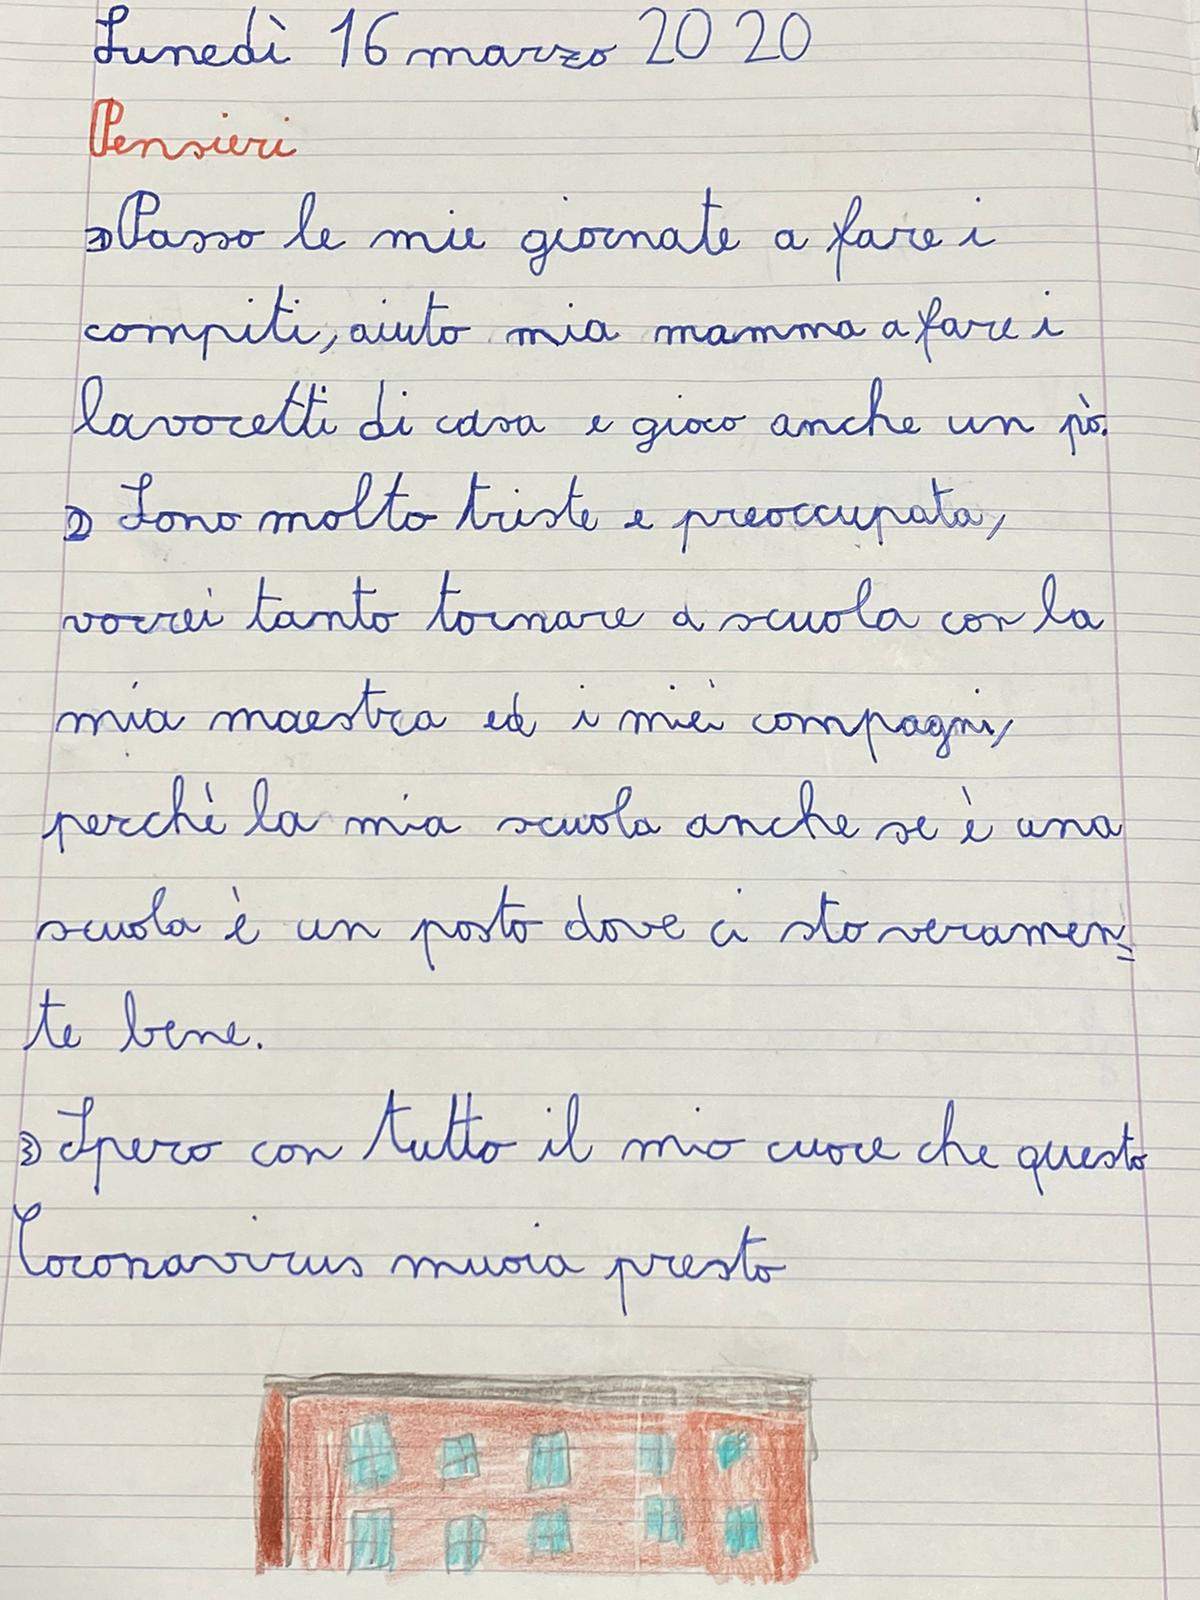 Lunedì 16 marzo 2020
Pensieri
1) Passo le mie giornate a fare i
compiti, aiuto mia mamma a fare i
lavoretti di casa e gioco anche un pò.
2) Sono molto triste e preoccupata,
vorrei tanto tornare a scuola con la
mia maestra ed i miei compagni,
perchè la mia scuola anche se è una
scuola è un posto dove ci sto veramen=
te bene.
3) Spero con tutto il mio cuore che questo
Coronavirus muoia presto